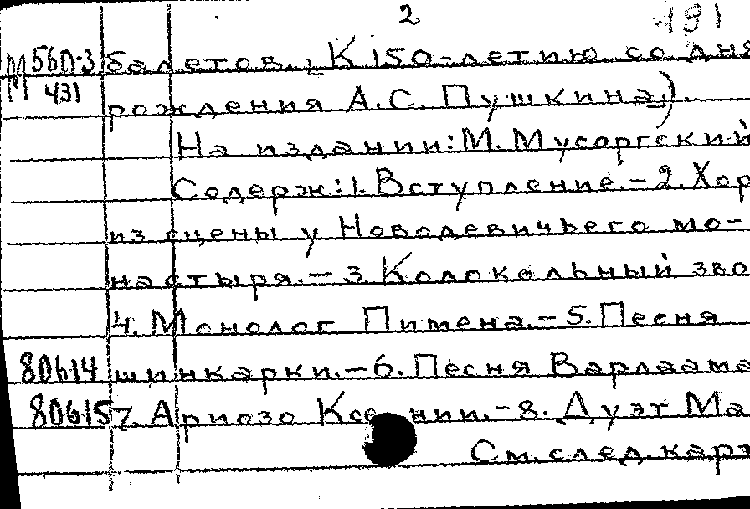 2 191
М 560-3 балетов. К 150-летию со дня
431 рождения А.С. Пушкина).
На издании: М. Мусоргский
Содерж: 1. Вступление. – 2. Хор
из сцены у Новодевичьего мо-
настыря. – 3. Колокольный зво
4. Монолог Пимена. – 5. Песня
80614 шинкарки. – 6. Песня Варлаама
80615 7. Ариозо Ксении. – 8. Дуэт Ма
См. след. карт